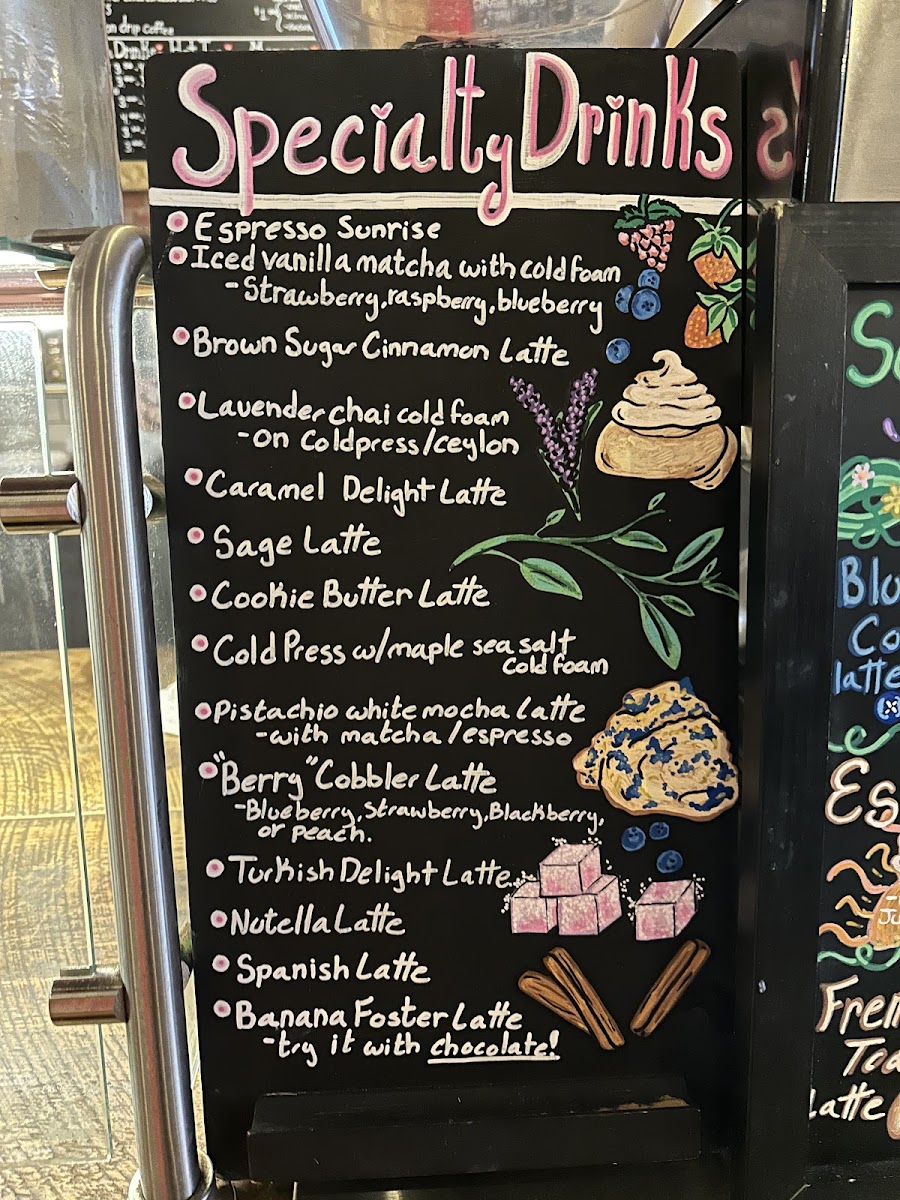 on drip coffee
Specialty Drinks
Espresso Sunrise
Iced vanilla matcha with cold foam
-Strawberry, raspberry, blueberry
Brown Sugar Cinnamon Latte
Lavender chai cold foam
-on Coldpress/ceylon
Caramel Delight Latte
Sage Latte
Cookie Butter Latte
Cold Press w/maple sea salt
cold foam
Pistachio white mocha latte
-with matcha/espresso
"Berry" Cobbler Latte
-Blueberry, Strawberry, Blackberry,
or peach.
Turkish Delight Latte
Nutella Latte
Spanish Latte
Banana Foster Latte
-try it with chocolate!
Blu
Co
latte
Es
Fren
Toa
Latte